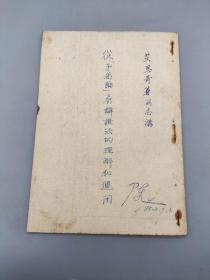 艾思奇著 同志講
從「矛盾論」看辯證法的理解和運用
陳